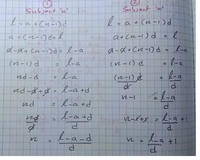 ①
Subject 'n'
l = a + (n-1)d
a + (n-1)d = l
a-a+(n-1)d = l-a
(n-1)d = l-a
nd-d = l-a
nd-d+d = l-a+d
nd = l-a+d
nd/d = l-a+d/d
n = l-a-d/d
②
Subject 'n'
l = a + (n-1)d
a + (n-1)d = l
a-a+(n-1)d = l-a
(n-1)d = l-a
(n-1)d/d = l-a/d
n-1 = l-a/d
n = l-a/d +1